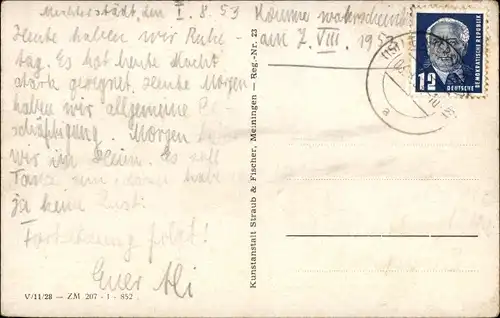 Mechterstädt, den I. 8. 53
Heute haben wir Ruhe-
tag. Es hat heute Nacht
stark geregnet. Heute Morgen
haben wir allgemeine Be-
schäftigung. Morgen
wir im Heim. Es soll
Tanz sein, daran habe
ja keine Lust!
Fortsetzung folgt!
Euer Ali
V/11/28 – ZM 207 - 1 - 852
Komme wahrscheinl
am 7. VIII. 1953
Kunstanstalt Straub & Fischer, Meiningen – Reg.-Nr. 23
12
DEUTSCHE
DEMOKRATISCHE REPUBLIK
a